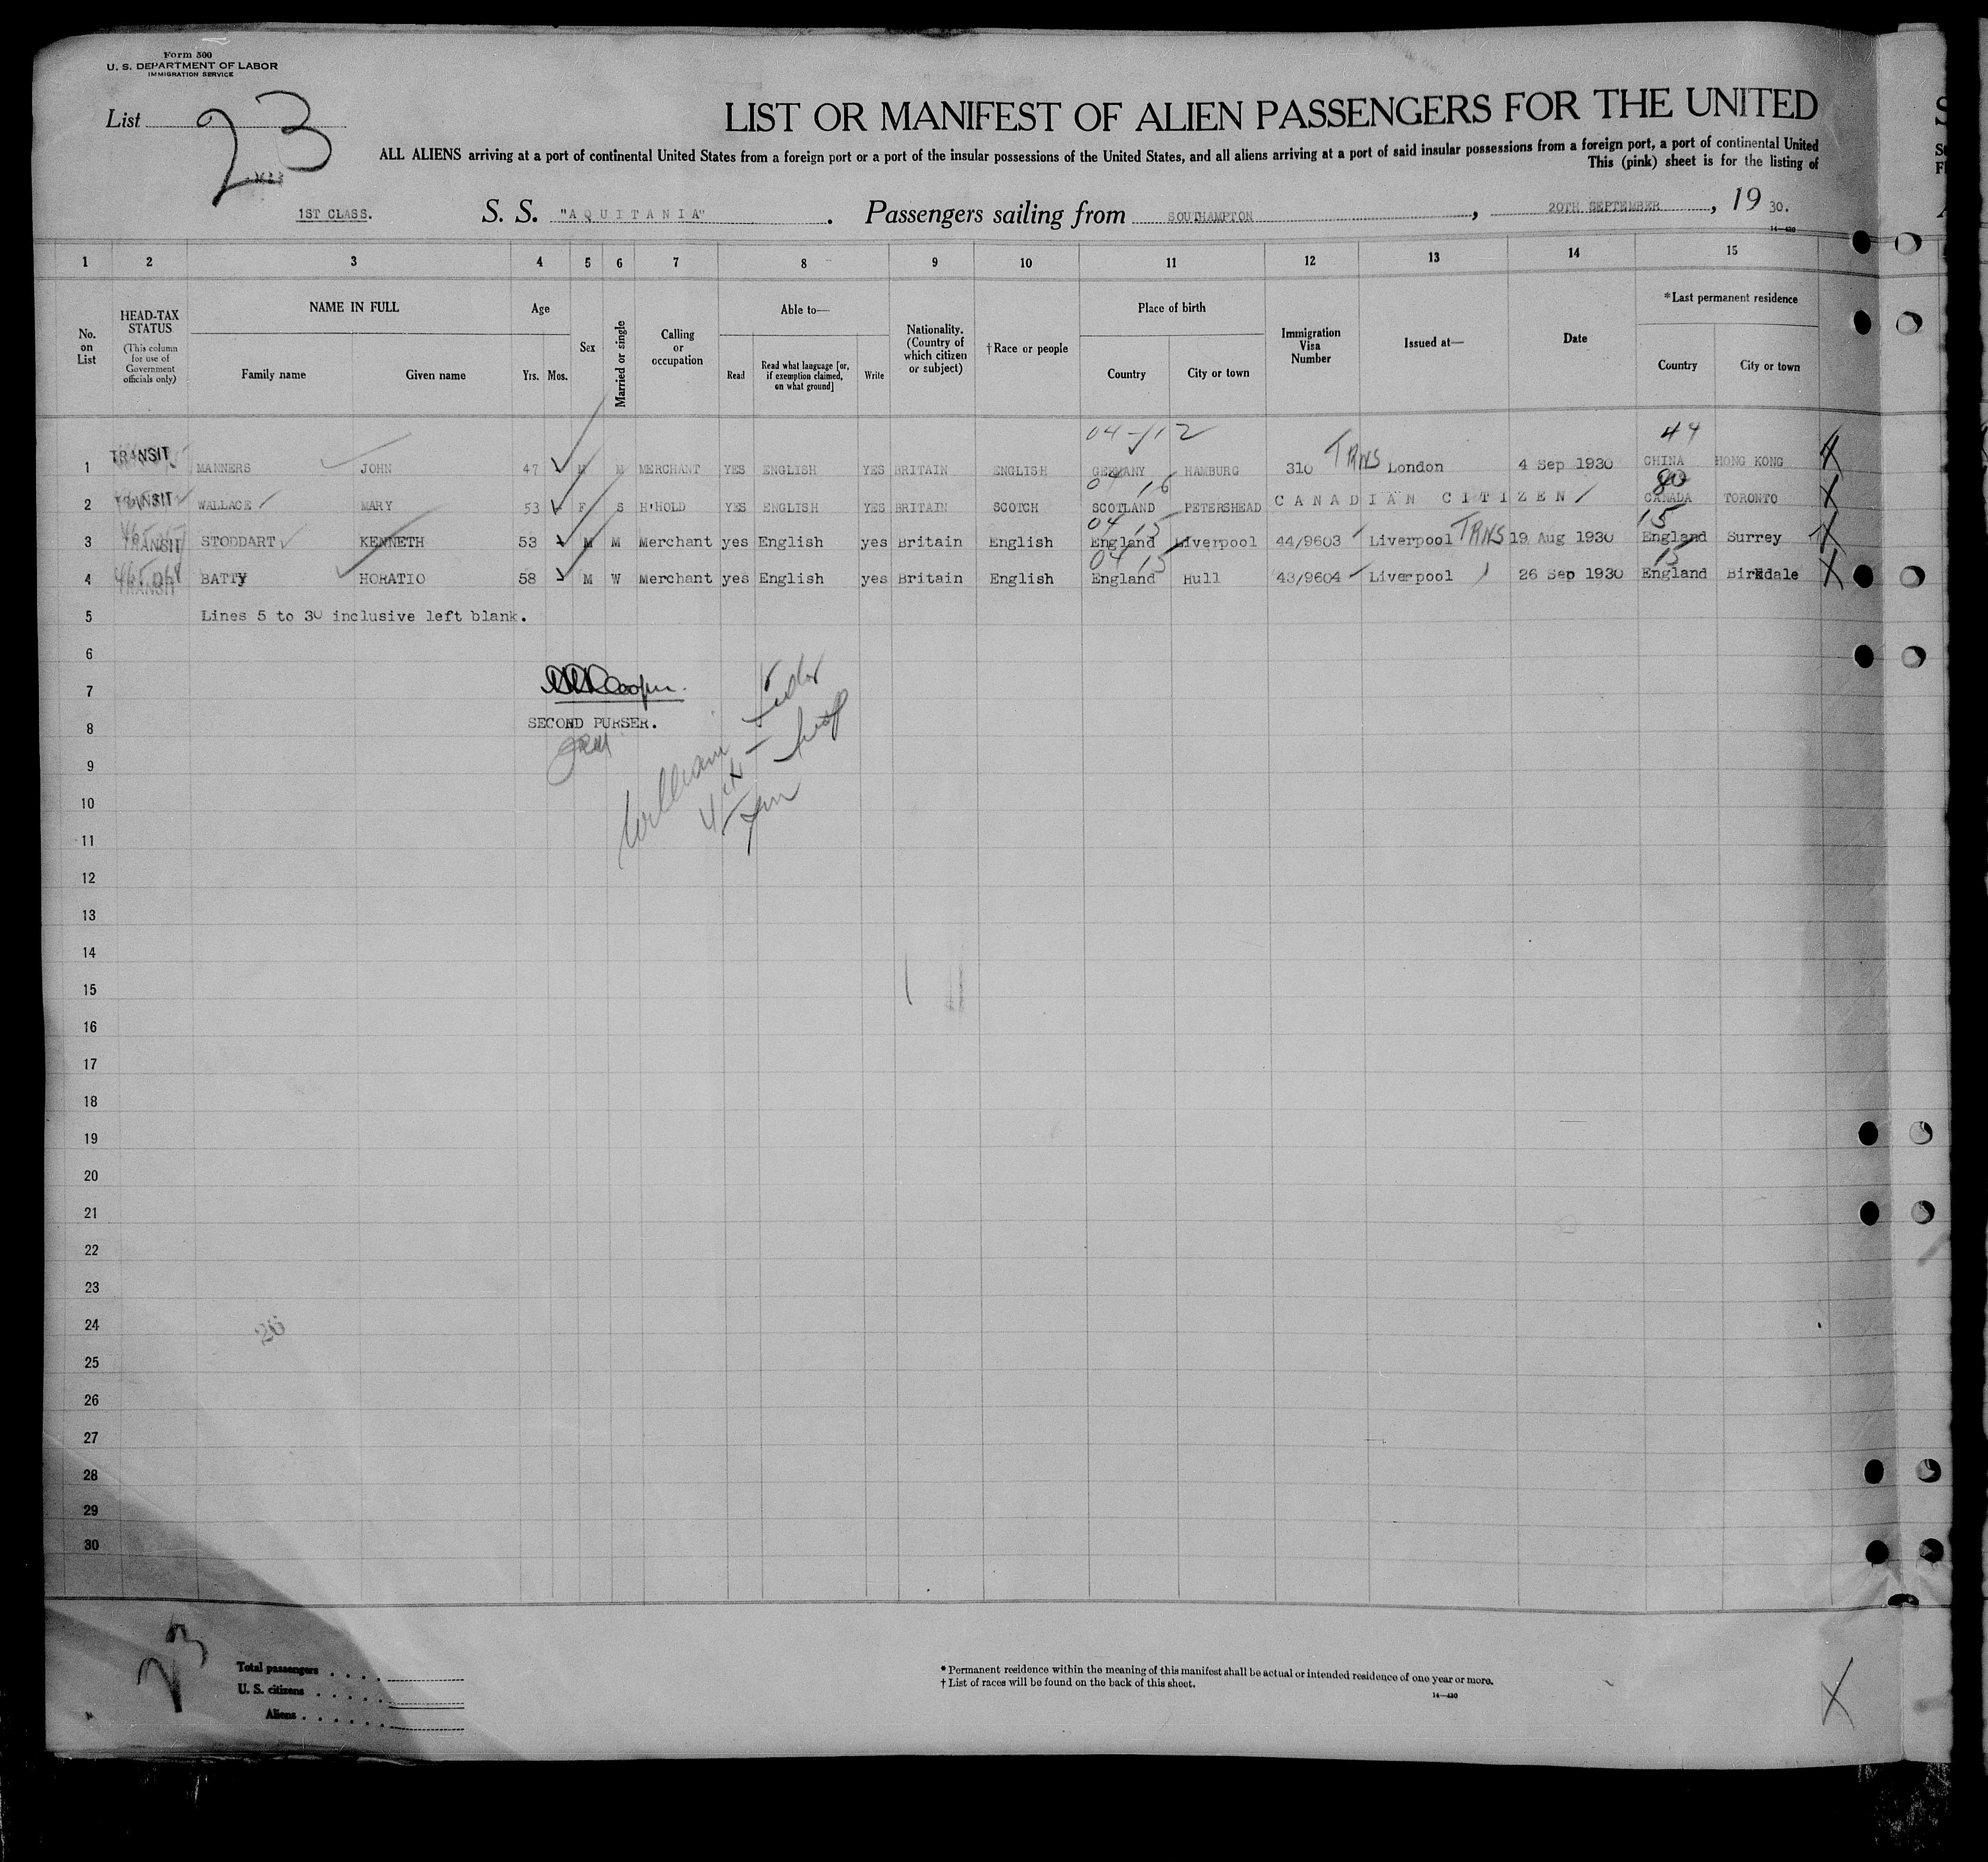 Form 500
U. S. DEPARTMENT OF LABOR
IMMIGRATION SERVICE
List 23
LIST OR MANIFEST OF ALIEN PASSENGERS FOR THE UNITED
ALL ALIENS arriving at a port of continental United States from a foreign port or a port of the insular possessions of the United States, and all aliens arriving at a port of said insular possessions from a foreign port, a port of continental United
This (pink) sheet is for the listing of
1ST CLASS. S. S. "AQUITANIA". Passengers sailing from SOUTHAMPTON, 20TH SEPTEMBER, 19 30.
14—430
1 2 3 4 5 6 7 8 9 10 11 12 13 14 15
No. on List
HEAD-TAX STATUS (This column for use of Government officials only)
NAME IN FULL Family name Given name
Age Yrs. Mos.
Sex
Married or single
Calling or occupation
Able to— Read Read what language [or, if exemption claimed, on what ground] Write
Nationality. (Country of which citizen or subject)
†Race or people
Place of birth Country City or town
Immigration Visa Number
Issued at—
Date
*Last permanent residence Country City or town
04-112 44
1 TRANSIT MANNERS JOHN 47 M M MERCHANT YES ENGLISH YES BRITAIN ENGLISH GERMANY HAMBURG 310 TRNS London 4 Sep 1930 CHINA HONG KONG
04 16 80
2 TRANSIT WALLACE MARY 53 F S H'HOLD YES ENGLISH YES BRITAIN SCOTCH SCOTLAND PETERSHEAD CANADIAN CITIZEN CANADA TORONTO
04 15 15
3 TRANSIT STODDART KENNETH 53 M M Merchant yes English yes Britain English England Liverpool 44/9603 Liverpool TRNS 19 Aug 1930 England Surrey
04 15 15
4 TRANSIT BATTY HORATIO 58 M W Merchant yes English yes Britain English England Hull 43/9604 Liverpool 26 Sep 1930 England Birkdale
5 Lines 5 to 30 inclusive left blank.
6
7 Cooper.
8 SECOND PURSER.
William
9
10
11
12
13
14
15
16
17
18
19
20
21
22
23
24
26
25
26
27
28
29
30
23
Total passengers
U. S. citizens
Aliens
* Permanent residence within the meaning of this manifest shall be actual or intended residence of one year or more.
† List of races will be found on the back of this sheet.
14—430